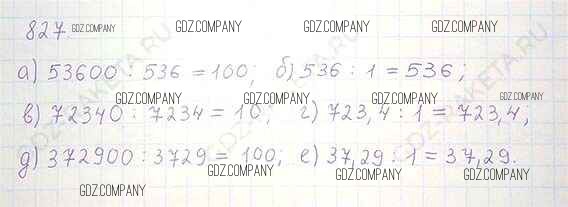 827. GDZ.COMPANY GDZ.COMPANY GDZ.COMPANY
а) 53600 : 536 = 100; б) 536 : 1 = 536;
GDZ.COMPANY GDZ.COMPANY GDZ.COMPANY GDZ.COMPANY
в) 72340 : 7234 = 10; г) 723,4 : 1 = 723,4;
GDZ.COMPANY
д) 372900 : 3729 = 100; е) 37,29 : 1 = 37,29.
GDZ.COMPANY GDZ.COMPANY GDZ.COMPANY GDZ.COMPANY